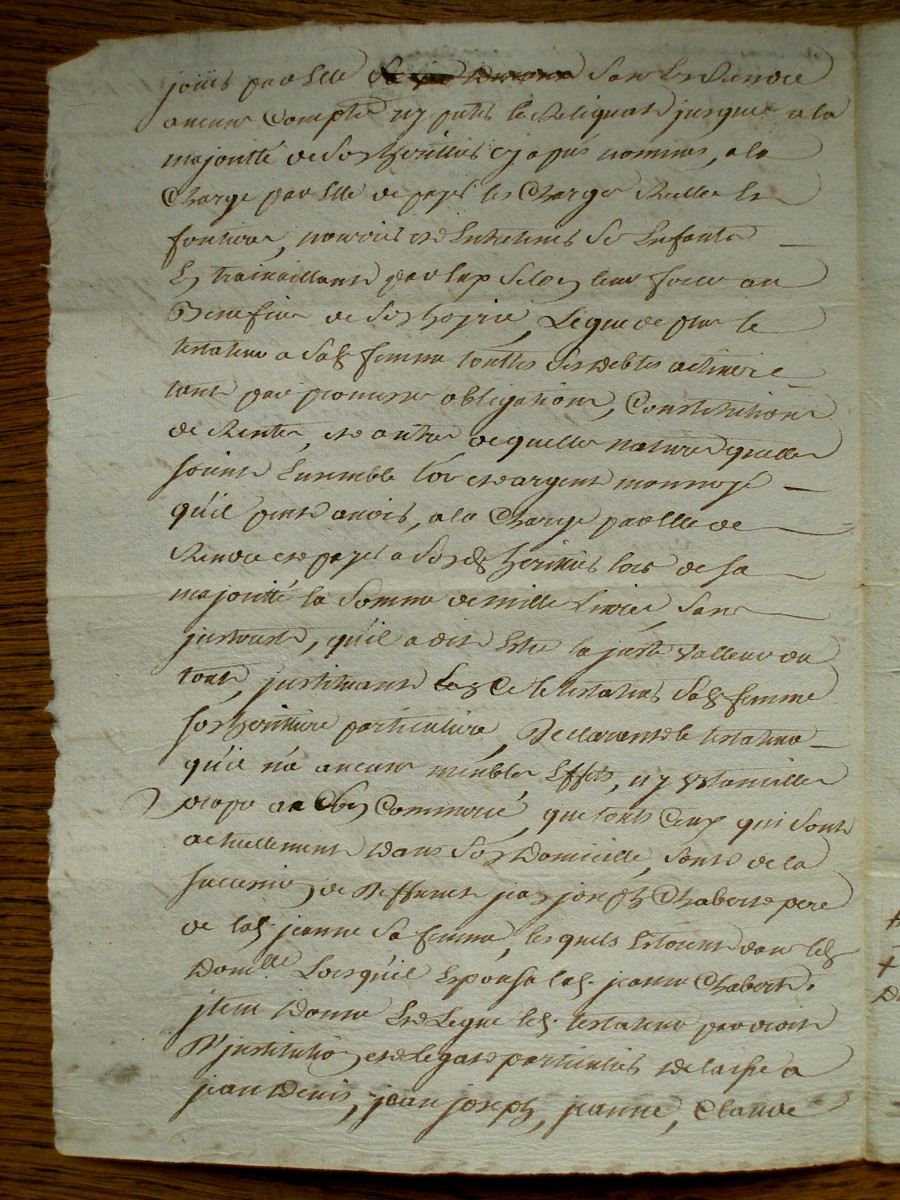 jouir par Elle sans En Rendre
aucun Compte ny preter le Reliquat jusques a la
majoritté de Son heritier cy apres nommé, a la
Charge par Elle de payer les Charges Reelles Et
foncieres, nourir et Entretenir Ses Enfants
En travaillant par Eux Selon leur force au
Benefice de Son hoyrie, Legue de plus le
testateur a Sade femme touttes Ses debtes actives
tant par promesses obligations, Constitutions
de Rentes, et autres de quelles natures qu'elles
soient Ensemble l'or et argent monnoyé
qu'il peut avoir, a la Charge par Elle de
Rendre et payer a Sond heritier lors de sa
majoritté la Somme de mille Livres, Sans
, qu'il a dit Estre la juste valleur du
tout, instituant Ledt testateur Sade femme
son heritiere particuliere, Declarant le testateur
qu'il n'a aucuns meubles Effets, ny Ustancilles
propres a Son Commerce, que touts Ceux qui Sont
actuellement dans Son Domicille, Sont de la
succession de Deffunt jean joseph Chabert pere
de lade jeanne Sa femme, lesquels Estoient dans led
Domille Lorsqu'il Epousa lade jeanne Chabert.
jtem Donne Et Legue led testateur par droit
D'jnstitution et de Legat particulier delaissé a
jean Denis, jean joseph, jeanne, Claude